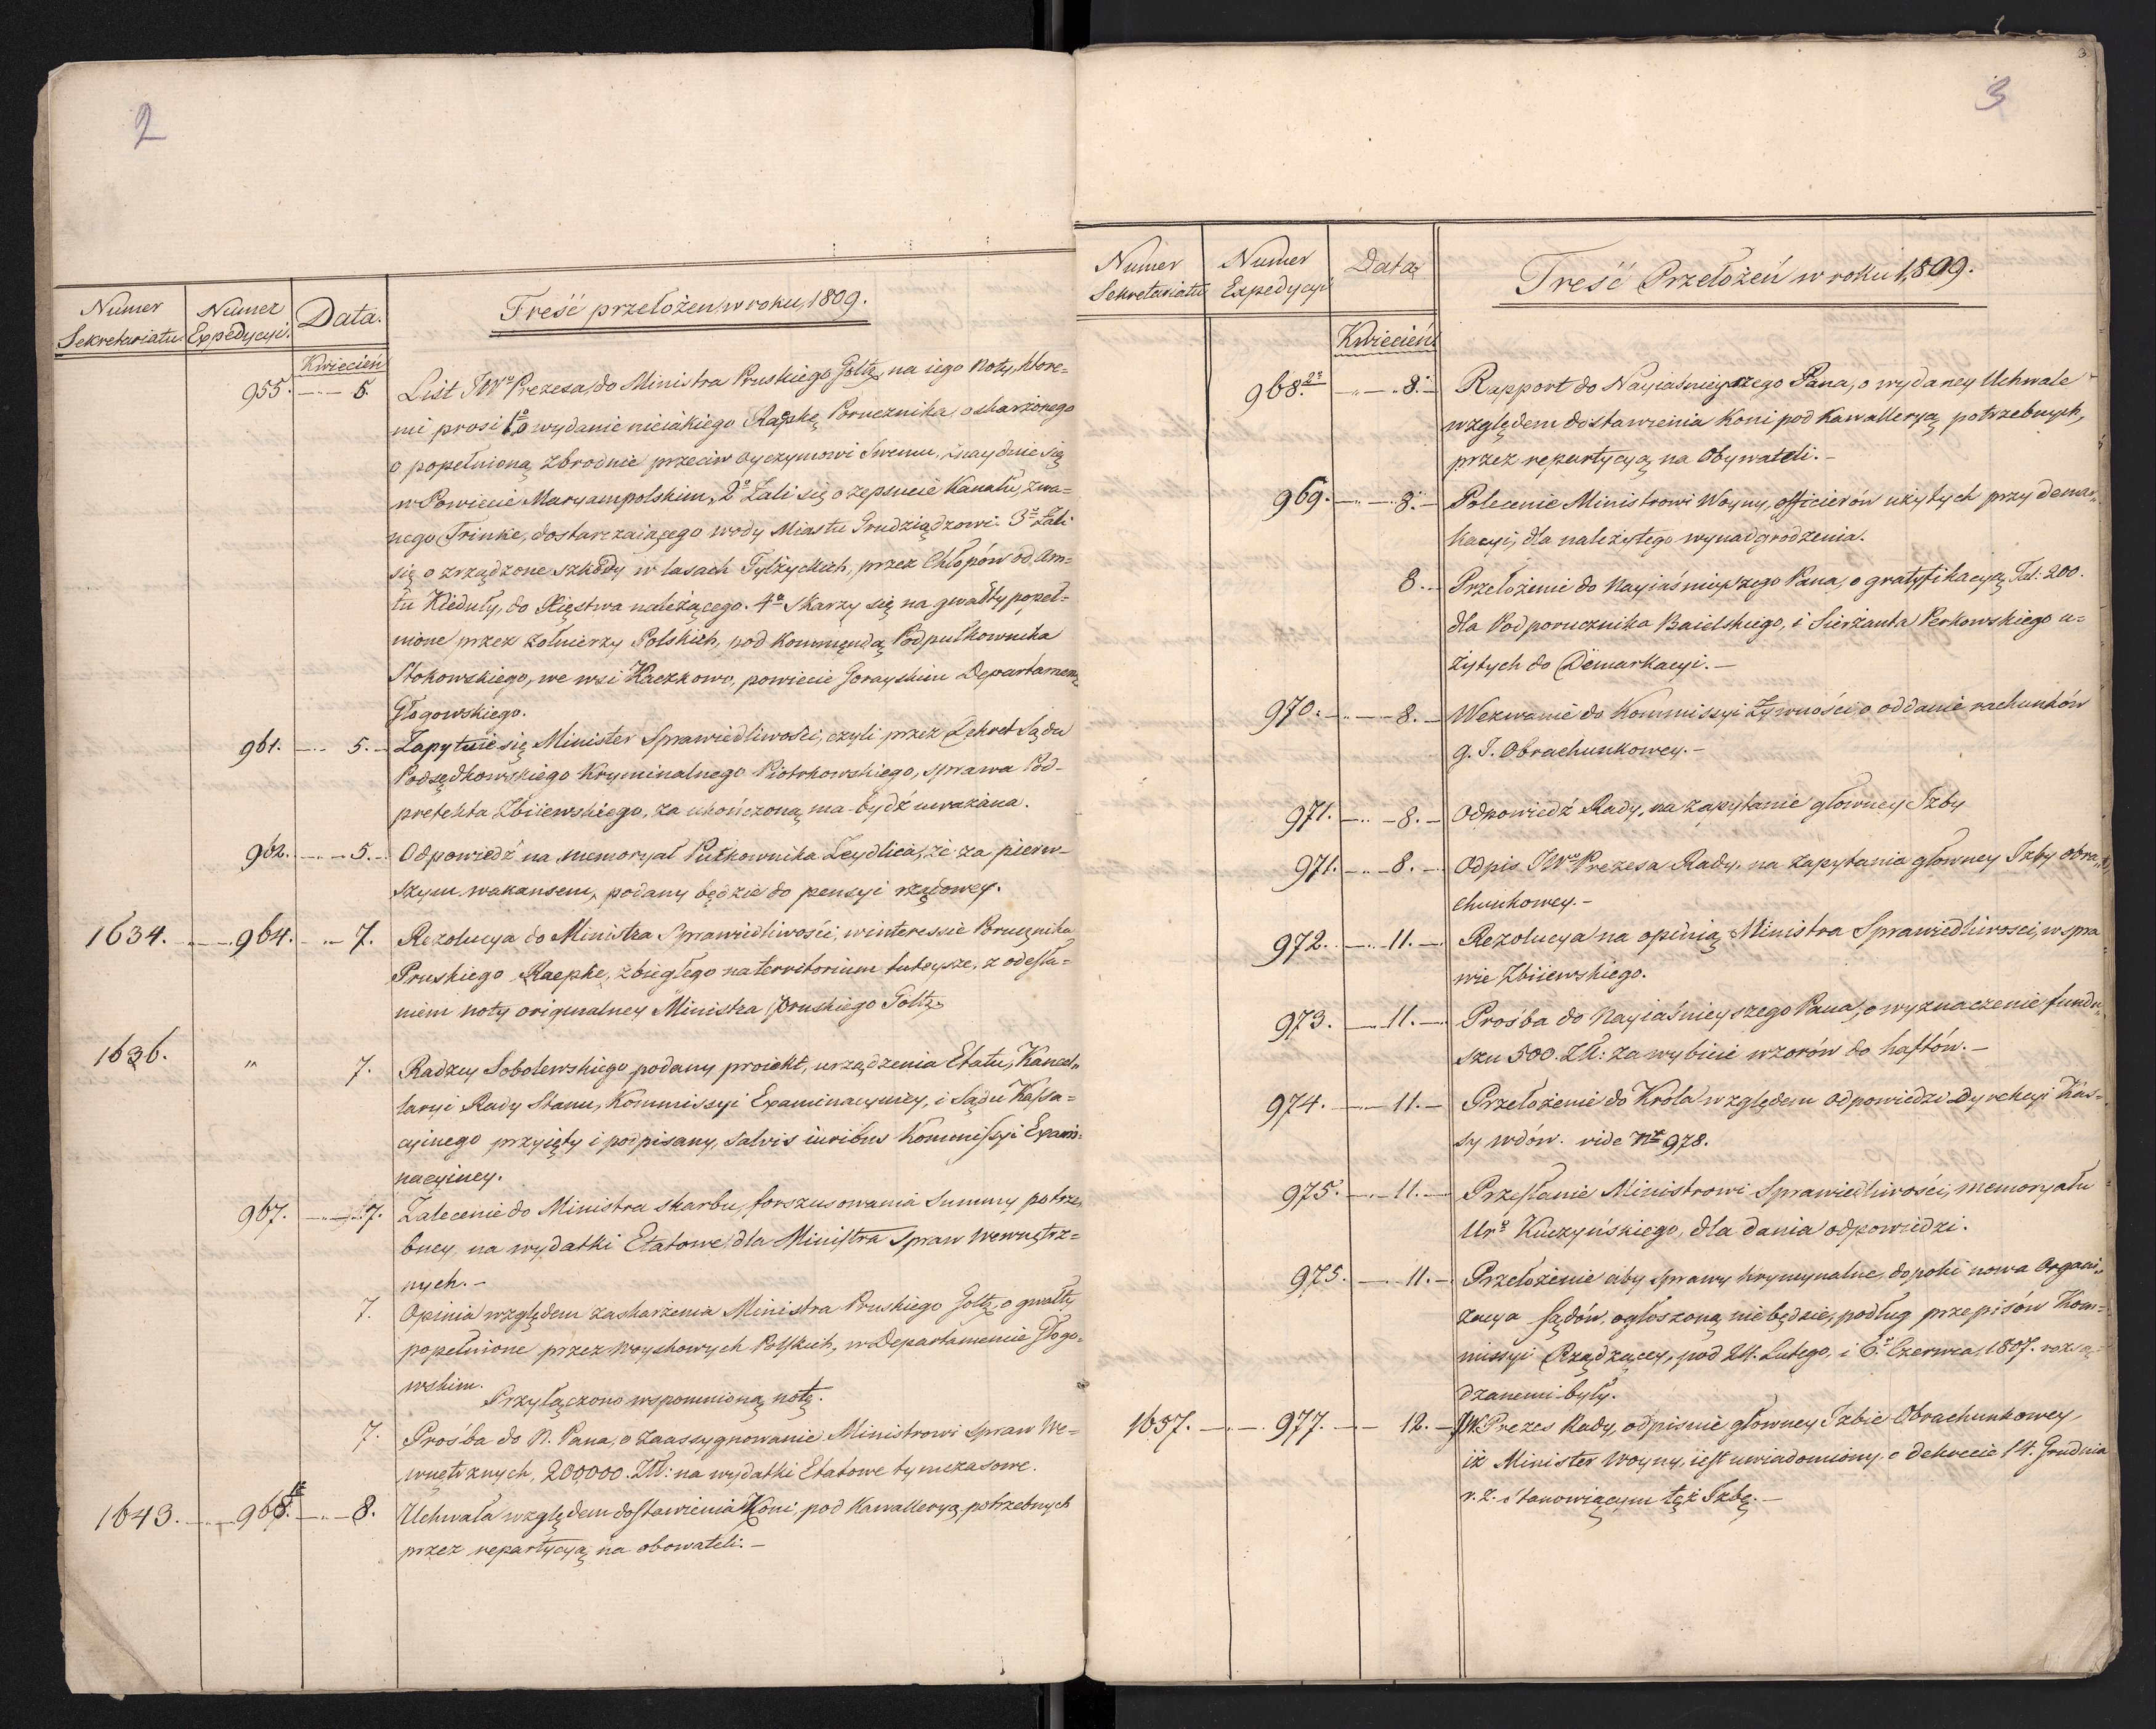 2
Numer Sekretariatu.
Numer Expedycyi.
Data.
Treść przełożen, w roku, 1809.
Kwiecień
955. 5. List JWo Prezesa, do Ministra Pruskiego Goltz, na iego noty, które=
mi prosi 1o o wydanie nieiákiego Raepke Porucznika, oskarżonego
o popełnioną zbrodnie przeciw Oyczymowi Swemu, znayduie się
w Powiecie Maryampolskim, 2o Żali się o zepsucie Kanału, zwa=
nego Trinke, dostarczaiącego wody Miastu Grudziądzowi. 3o Żali
się o zrządzone szkody w lasach Tylżyckich, przez Chłopów od Am=
tu Kieduły, do Xięstwa należącego. 4o Skarzy się na gwałty popeł=
nione przez żołnierzy Polskich, pod Kommendą Podpułkownika
Stokowskiego, we wsi Kaczkowo, powiecie Gorayskim Departamen
Głogowskiego.
961. 5. Zapytuie się Minister Sprawiedliwości, czyli przez Dekret Sądu
Podsędkowskiego Kryminalnego Piotrkowskiego, sprawa Pod-
prefekta Zbiiewskiego, za ukończoną ma być uważana.
962. 5. Odpowiedź na memoryał Pułkownika Zeydlica, że za pierw-
szym wakansem, podany będzie do pensyi rządowey.
1634. 964. 7. Rezolucya do Ministra Sprawiedliwości, winteressie Porucznika
Pruskiego Raepke, zbiegłego na territorium tuteysze, z odesła=
niem noty originalney Ministra Pruskiego Goltz
1636. " 7. Radzcy Sobolewskiego podany proiekt, urządzenia Etatu, Kancel„
laryi Rady Stanu, Kommissyi Examinacyiney, i Sądu Kassa=
cyinego przyięty i podpisany, salvis iuribus Kommissyi Exami=
nacyiney.
967. 7. Zalecenie do Ministra skarbu, forszusowania Summy potrze,
bney, na wydatki Etatowe, dla Ministra Spraw Wewnętrz=
nych.-
7. Opinia względem zaskarżenia Ministra Pruskiego Goltz, o gwałty
popełnione przez Woyskowych Polskich, w Departamencie Głogo=
wskim.
Przyłączono wspomnioną notę.
7. Prośba do N. Pana, o zaassygnowanie Ministrowi Spraw We=
wnętrznych, 200000. Zł: na wydatki Etatowe tymczasowe.
1643. 968. 8. Uchwała względem dostawienia Koni, pod Kawalleryą potrzebnych
przez repartycyą na obowateli.-
3
3
Numer Sekretariatu
Numer Expedycyi
Data
Treść Przełożeń w roku 1,809.
Kwiecień.
968. 2o 8. Rapport do Nayiaśnieyszego Pana, o wydaney Uchwale
względem dostawienia Koni pod Kawalleryą potrzebnych,
przez repartycyą na Obywateli.-
969. 8. Polecenie Ministrowi Woyny, officierów użytych przy demar„
kacyi, dla należytego wynadgrodzenia.
8. Przełożenie do Nayiaśnieyszego Pana, o gratyfikacyą Tal: 200.
dla Podporucznika Baielskiego, i Sierżanta Perkowskiego u=
żytych do Demarkacyi.-
970. 8. Wezwanie do Kommissyi Żywności o oddanie rachunków
G. I. Obrachunkowey.-
971. 8. Odpowiedź Rady, na zapytanie głowney Izby
971. 8. Odpis JWo Prezesa Rady, na zapytania głowney Izby obra„
chunkowey.-
972. 11. Rezolucya na opinią Ministra Sprawiedliwości, w spra
wie Zbiiewskiego.
973. 11. Prośba do Nayiaśnieyszego Pana, o wyznaczenie fundu„
szu 500. Zł: za wybicie wzorów do haftów.-
974. 11. Przełożenie do Króla względem odpowiedzi Dyrekcyi Kas=
sy wdów. vide No 978.
975. 11. Przesłanie Ministrowi Sprawiedliwości, memoryału
Uro Kuczyńskiego, dla dania odpowiedzi.
975. 11. Przełożenie aby sprawy krymynalne, dopoki nowa Organi„
zacya sądów, ogłoszoną nie będzie, podług przepisów Kom=
missyi Rządzącey, pod 24. Lutego, i 6. Czerwca, 1807. rozsą=
dzanemi były.
1657. 977. 12. JW. Prezes Rady, odpisuie głowney Izbie Obrachunkowey,
iż Minister Woyny, iest uwiadomiony, o dekrecie 14. Grudnia
r. z. stanowiącym tęż Izbę.-